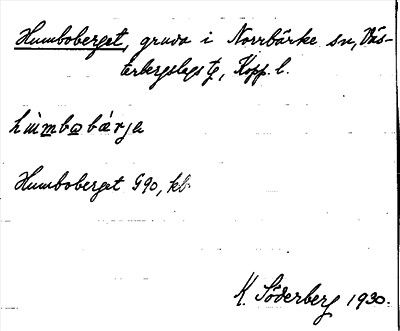 Humboberget, gruva i Norrbärke sn, Väs-
terbergslags tg, Kopp. l.
hùmbobärja
Humboberget G90, kb.
K. Söderberg 1930.